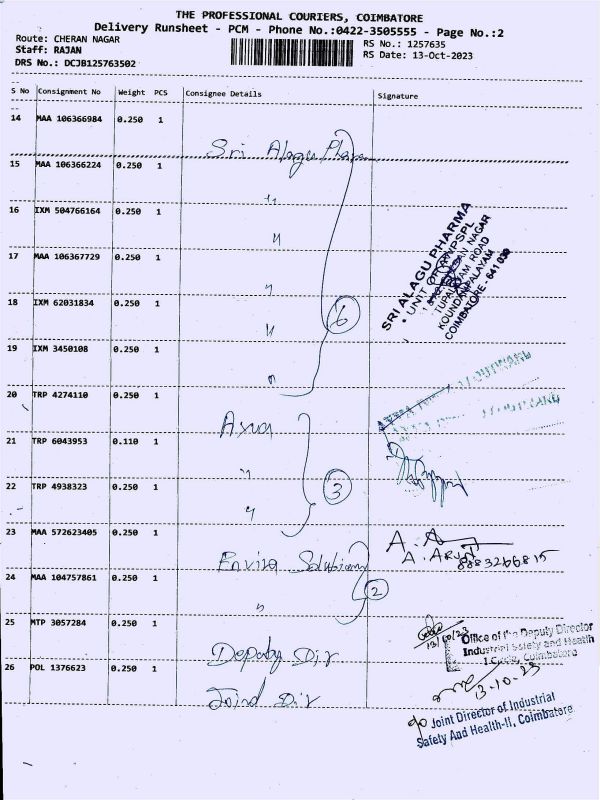 THE PROFESSIONAL COURIERS, COIMBATORE
Delivery Runsheet - PCM - Phone No.:0422-3505555 - Page No.:2
Route: CHERAN NAGAR RS No.: 1257635
Staff: RAJAN RS Date: 13-Oct-2023
DRS No.: DCJB125763502
S No Consignment No Weight PCS Consignee Details Signature
14 MAA 106366984 0.250 1
Sri Alagu Pharma
15 MAA 106366224 0.250 1
"
16 IXM 504766164 0.250 1
"
17 MAA 106367729 0.250 1
"
18 IXM 62031834 0.250 1
6
"
19 IXM 3450108 0.250 1
"
SRI ALAGU PHARMA
KOUNDAMPALAYAM
COIMBATORE - 641 030
20 TRP 4274110 0.250 1
21 TRP 6043953 0.110 1
"
22 TRP 4938323 0.250 1
3
"
23 MAA 572623405 0.250 1
A. A
A. ARUN
8883266815
24 MAA 104757861 0.250 1
2
"
25 MTP 3057284 0.250 1
Deputy Dir
13/10/23
Office of the Deputy Director
Industrial Safety and Health
I Circle, Coimbatore
26 POL 1376623 0.250 1
Joind Dir
13-10-23
o/o Joint Director of Industrial
Safety And Health-II, Coimbatore